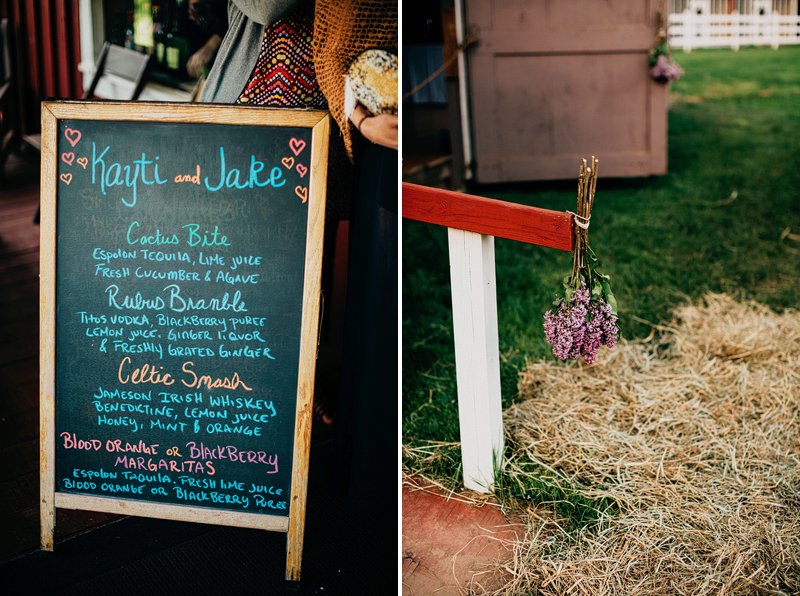 Kayti and Jake
Cactus Bite
Espolon Tequila, Lime Juice
Fresh Cucumber & Agave
Rubus Bramble
Titos Vodka, Blackberry Puree
Lemon Juice, Ginger Liquor
& Freshly Grated Ginger
Celtic Smash
Jameson Irish Whiskey
Benedictine, Lemon Juice
Honey, Mint & Orange
Blood Orange or Blackberry
Margaritas
Espolon Tequila, Fresh Lime Juice
Blood Orange or Blackberry Puree